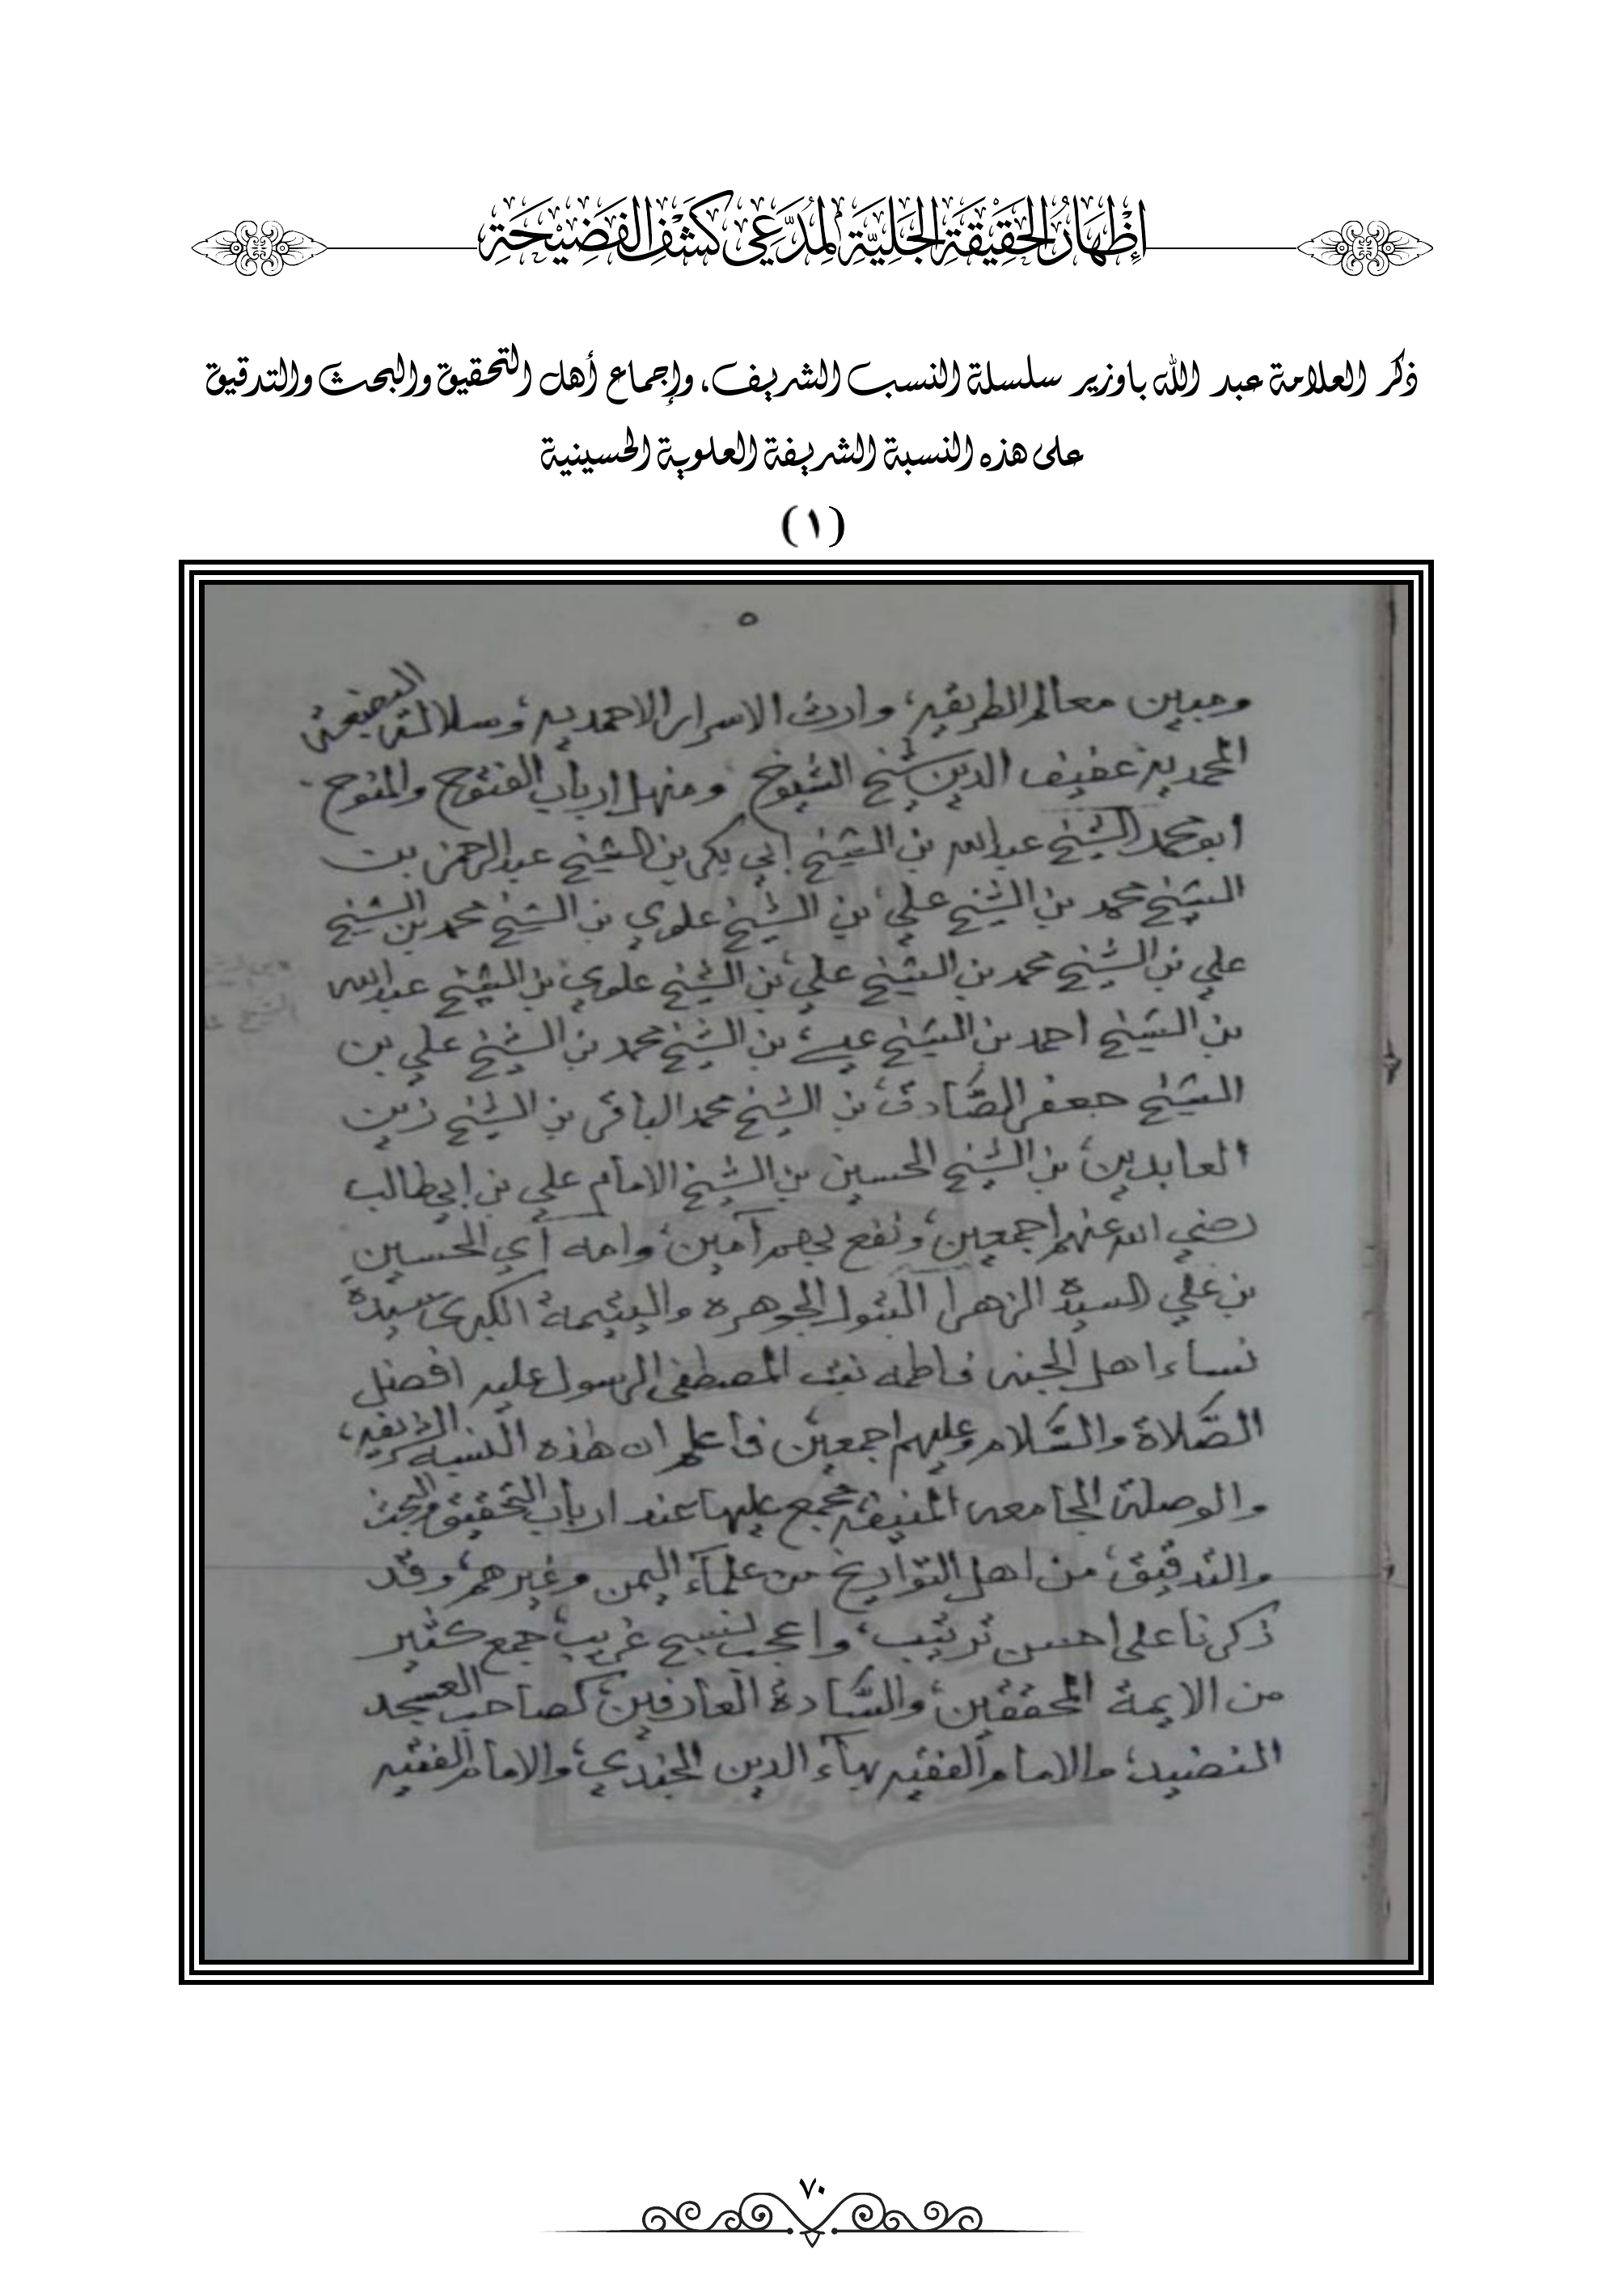 إِظْهَارُ الحَقِيْقَةِ الجَلِيَّةِ لِمُدَّعِي كَشْفِ الفَضِيْحَةِ
ذكر العلامة عبد الله باوزير سلسلة النسب الشريف، وإجماع أهل التحقيق والبحث والتدقيق
على هذه النسبة الشريفة العلوية الحسينية
(١)
٥
ومبين معالم الطريقه، وارث الاسرار الاحمديه، وسلالة البضعة
المحمديه عفيف الدين شيخ الشيوخ ومنهل ارباب الفتوح والمنوح
ابو محمد الشيخ عبدالله بن الشيخ ابي بكر بن الشيخ عبدالرحمن بن
الشيخ محمد بن الشيخ علي، بن الشيخ علوي بن الشيخ محمد بن الشيخ
علي بن الشيخ محمد بن الشيخ علي، بن الشيخ علوي، بن الشيخ عبدالله
بن الشيخ احمد بن الشيخ عيسى، بن الشيخ محمد بن الشيخ علي بن
الشيخ جعفر الصَّادق، بن الشيخ محمد الباقر بن الشيخ زين
العابدين، بن الشيخ الحسين بن الشيخ الامام علي بن ابي طالب
رضي الله عنهم اجمعين، ونفع بهم آمين، وامه أي الحسين
بن علي السيدة الزهرا البتول الجوهره واليتيمة الكبرى سيدة
نساء اهل الجنه فاطمه بنت المصطفى الرسول عليه افضل
الصَّلاة والسَّلام وعليهم اجمعين، فاعلم ان هذه النسبه الشريفه،
والوصلة الجامعه المنيفه مجمع عليها عند ارباب التحقيق والبحث
والتدقيق، من اهل التواريخ من علمآء اليمن وغيرهم، وقد
ذكرنا على احسن ترتيب، واعجب نسيج غريب، جمع كثير
من الايمة المحققين، والسَّادة العارفين، كصاحب العسجد
النضيد، والامام الفقيه بهآء الدين الجندي، والامام الفقيه
٧٠